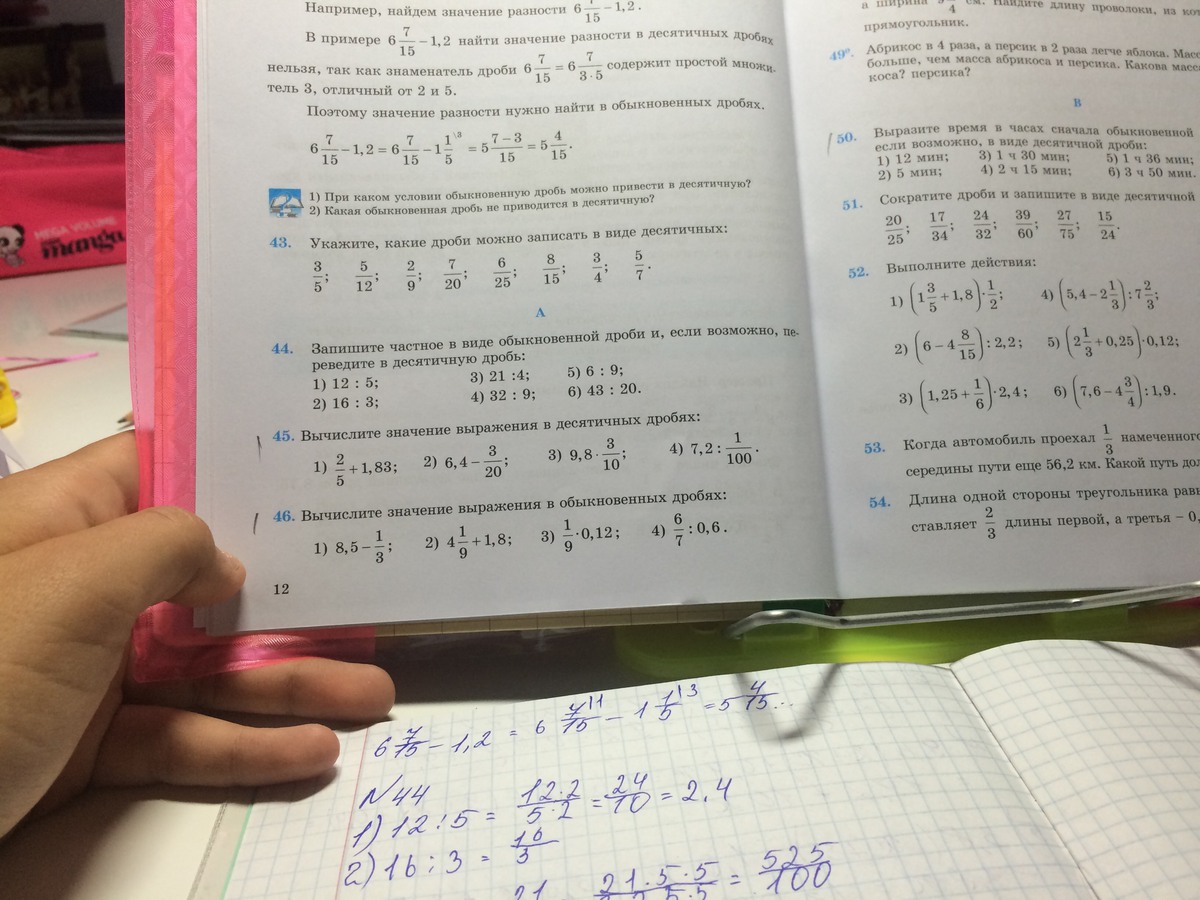 Например, найдем значение разности 6 7/15 − 1,2.
В примере 6 7/15 − 1,2 найти значение разности в десятичных дробях
нельзя, так как знаменатель дроби 6 7/15 = 6 7/(3·5) содержит простой множи-
тель 3, отличный от 2 и 5.
Поэтому значение разности нужно найти в обыкновенных дробях.
6 7/15 − 1,2 = 6 7/15 − 1 1/5 \3 = 5 (7−3)/15 = 5 4/15.
1) При каком условии обыкновенную дробь можно привести в десятичную?
2) Какая обыкновенная дробь не приводится в десятичную?
43. Укажите, какие дроби можно записать в виде десятичных:
3/5; 5/12; 2/9; 7/20; 6/25; 8/15; 3/4; 5/7.
А
44. Запишите частное в виде обыкновенной дроби и, если возможно, пе-
реведите в десятичную дробь:
1) 12 : 5; 3) 21 :4; 5) 6 : 9;
2) 16 : 3; 4) 32 : 9; 6) 43 : 20.
45. Вычислите значение выражения в десятичных дробях:
1) 2/5 + 1,83; 2) 6,4 − 3/20; 3) 9,8 · 3/10; 4) 7,2 : 1/100.
46. Вычислите значение выражения в обыкновенных дробях:
1) 8,5 − 1/3; 2) 4 1/9 + 1,8; 3) 1/9 · 0,12; 4) 6/7 : 0,6.
12
а ширина см. Найдите длину проволоки, из
прямоугольник.
49º. Абрикос в 4 раза, а персик в 2 раза легче яблока.
больше, чем масса абрикоса и персика. Какова
коса? персика?
В
50. Выразите время в часах сначала обыкновенной
если возможно, в виде десятичной дроби:
1) 12 мин; 3) 1 ч 30 мин; 5) 1 ч 36 мин;
2) 5 мин; 4) 2 ч 15 мин; 6) 3 ч 50 мин.
51. Сократите дроби и запишите в виде десятичной
20/25; 17/34; 24/32; 39/60; 27/75; 15/24.
52. Выполните действия:
1) (1 3/5 + 1,8) · 1/2; 4) (5,4 − 2 1/3) : 7 2/3;
2) (6 − 4 8/15) : 2,2; 5) (2 1/3 + 0,25) · 0,12;
3) (1,25 + 1/6) · 2,4; 6) (7,6 − 4 3/4) : 1,9.
53. Когда автомобиль проехал 1/3 намеченного
середины пути еще 56,2 км. Какой путь
54. Длина одной стороны треугольника
ставляет 2/3 длины первой, а третья − 0,
MEGA VOLUME
6 7/15 − 1,2 = 6 7/15 \1 − 1 1/5 \3 = 5 4/15 ..
N44
1) 12 : 5 = 12·2/5·2 = 24/10 = 2,4
2) 16 : 3 = 16/3
21 21·5·5 = 525/100